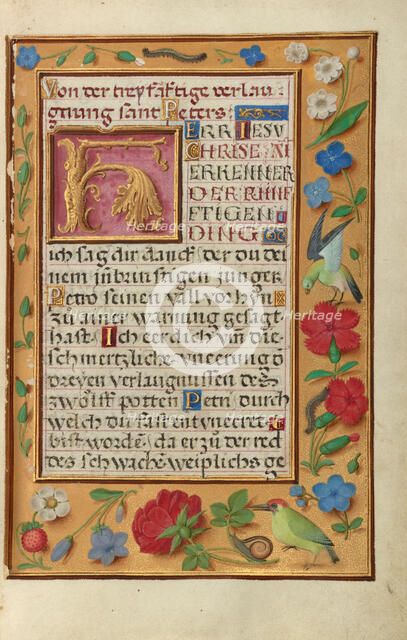 Von der treyfaltige verlau-
gnung sant Peters:
HERR IESU
CHRISE AI
ERKENNER
DER KÜNF
FTIGEN
DING
ich sag dir danck der du dei
nem inbrinstigen junger
Petro seinen vall vorhyn
zu ainer warnung gesagt
hast. Ich eer dich yn die
schmertzliche vneerung
dreyen verlaugnussen des
zwolff potten Petri durch
welch du
bist worde da er zu der red
des schwache weiplichs ge
heritage